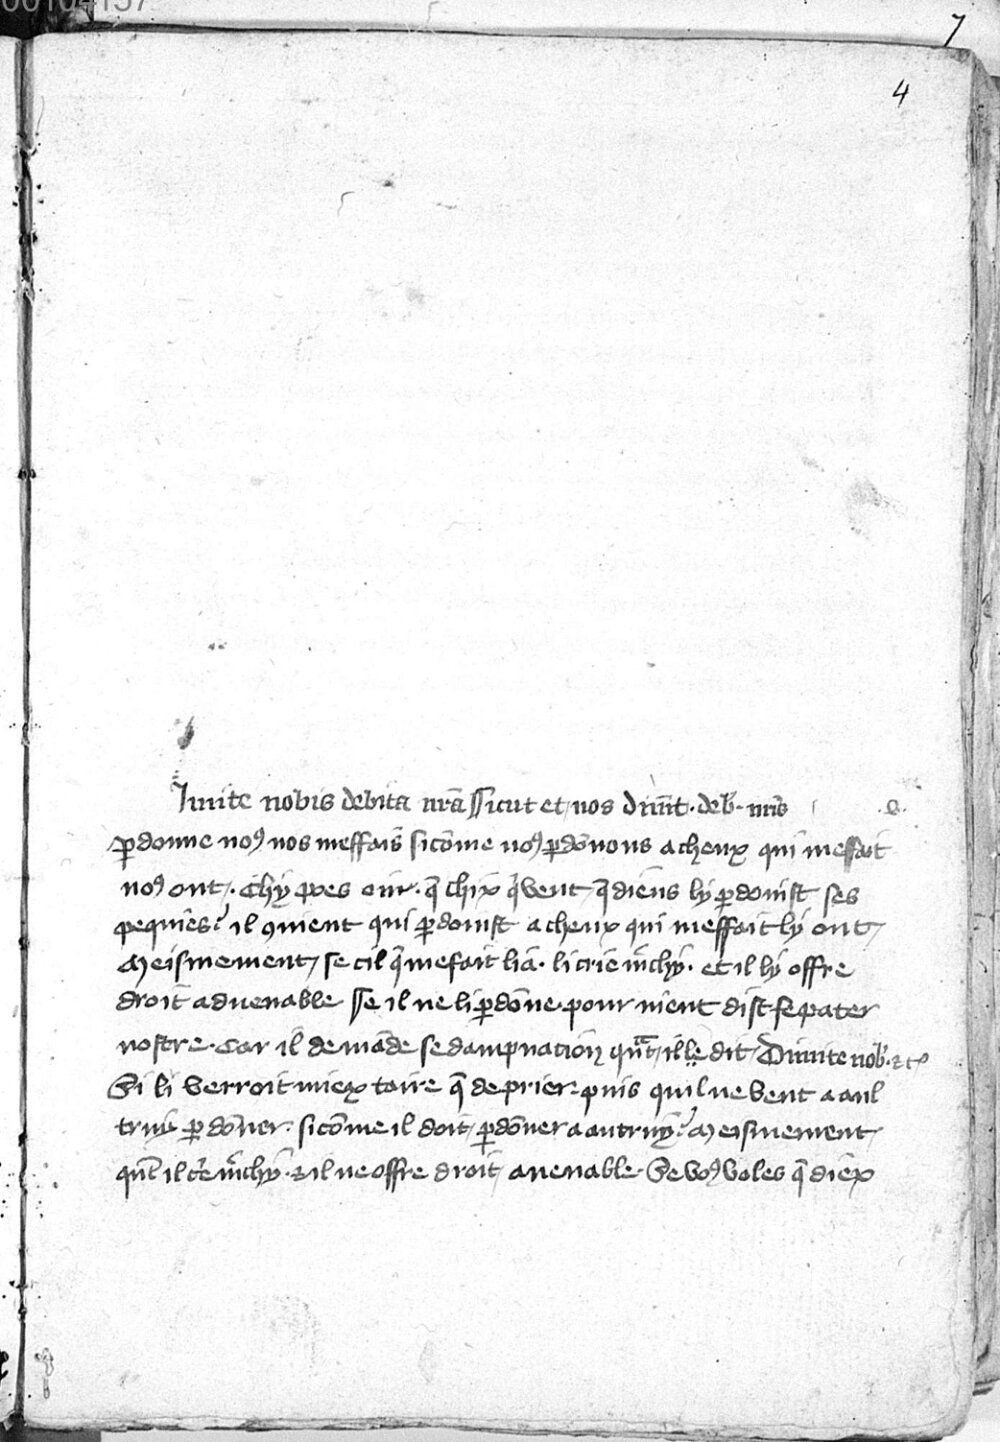 00104137
7
4
Imite nobis debita nrã Sicut et nos dimit. deb. nris
e.
pdonne noꝰ nos meffais sicõme noꝰ pdõnons a cheux qui meffait
noꝰ ont. Chy poes oir. q̃ chix q̃ veut q̃ diens ly pdonist ses
pequies? il ꝯuient qui pdonist a cheux qui meffait ly ont
Meismement se cil q̃ mefait li a. li crie m̃chy. et il ly offre
droit aduenable Se il ne li pdõne. pour nient dist se pater
nostre. Car il demãde se dampnation qñt il le dit. Dimite nob̾. ⁊c̾
Si li verroit miex taire q̃ de prier. puis quil ne veut a aul
truy pdõner. sicõme il doit pdõner a autruy? Meismement
qñt il c̾e m̃chy. ⁊ il ne offre droit auenable. Se voꝰ voles q̃ diex